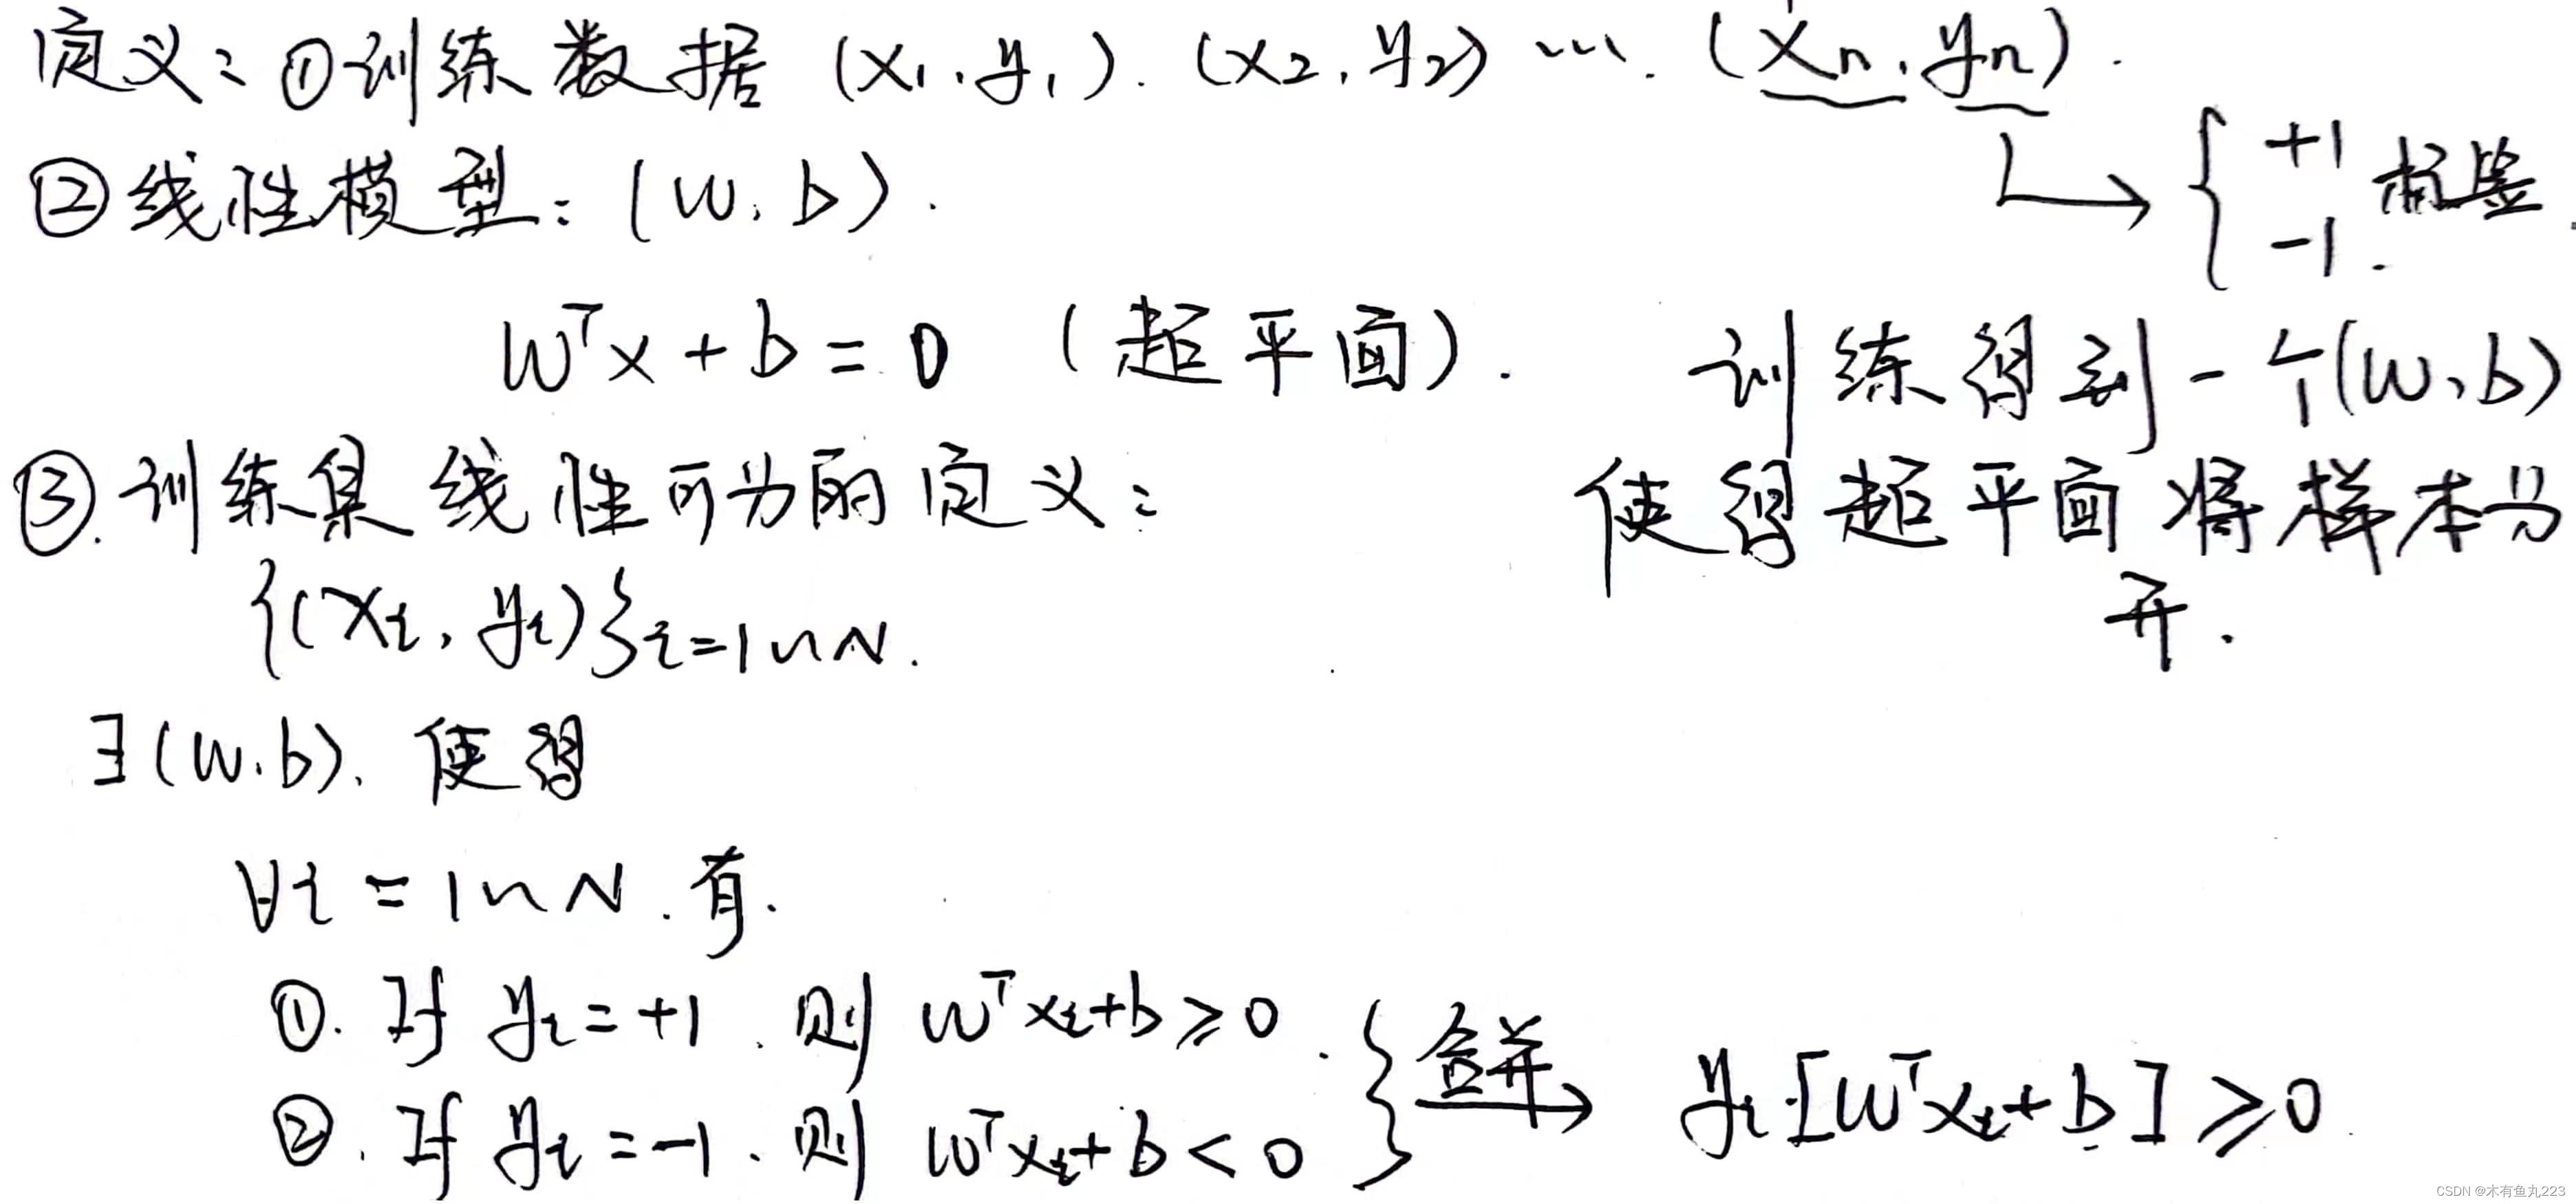 定义：①训练数据 (x₁,y₁). (x₂,y₂) ··· (xₙ,yₙ).
{ +1 -1. 标签
②线性模型：(w,b).
wᵀx+b=0 (超平面).
训练得到一个(w,b)
使得超平面将样本分
开.
③.训练集线性可分的定义：
{(xᵢ,yᵢ)}ᵢ₌₁~N.
∃(w,b), 使得
∀i=1~N.有.
①. If yᵢ=+1. 则 wᵀxᵢ+b≥0.
②. If yᵢ=-1. 则 wᵀxᵢ+b<0
} 合并→ yᵢ[wᵀxᵢ+b]≥0.
CSDN @木有鱼丸223